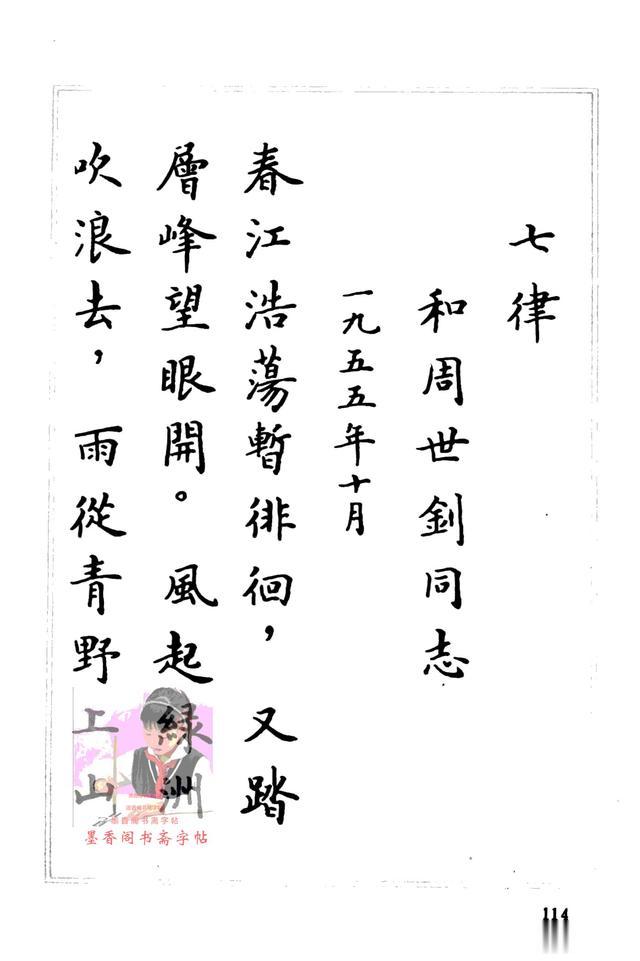 七律
和周世釗同志
一九五五年十月
春江浩蕩暫徘徊，又踏
層峰望眼開。風起綠洲
吹浪去，雨從青野上山
墨香阁书斋字帖
墨香阁书斋字帖
114